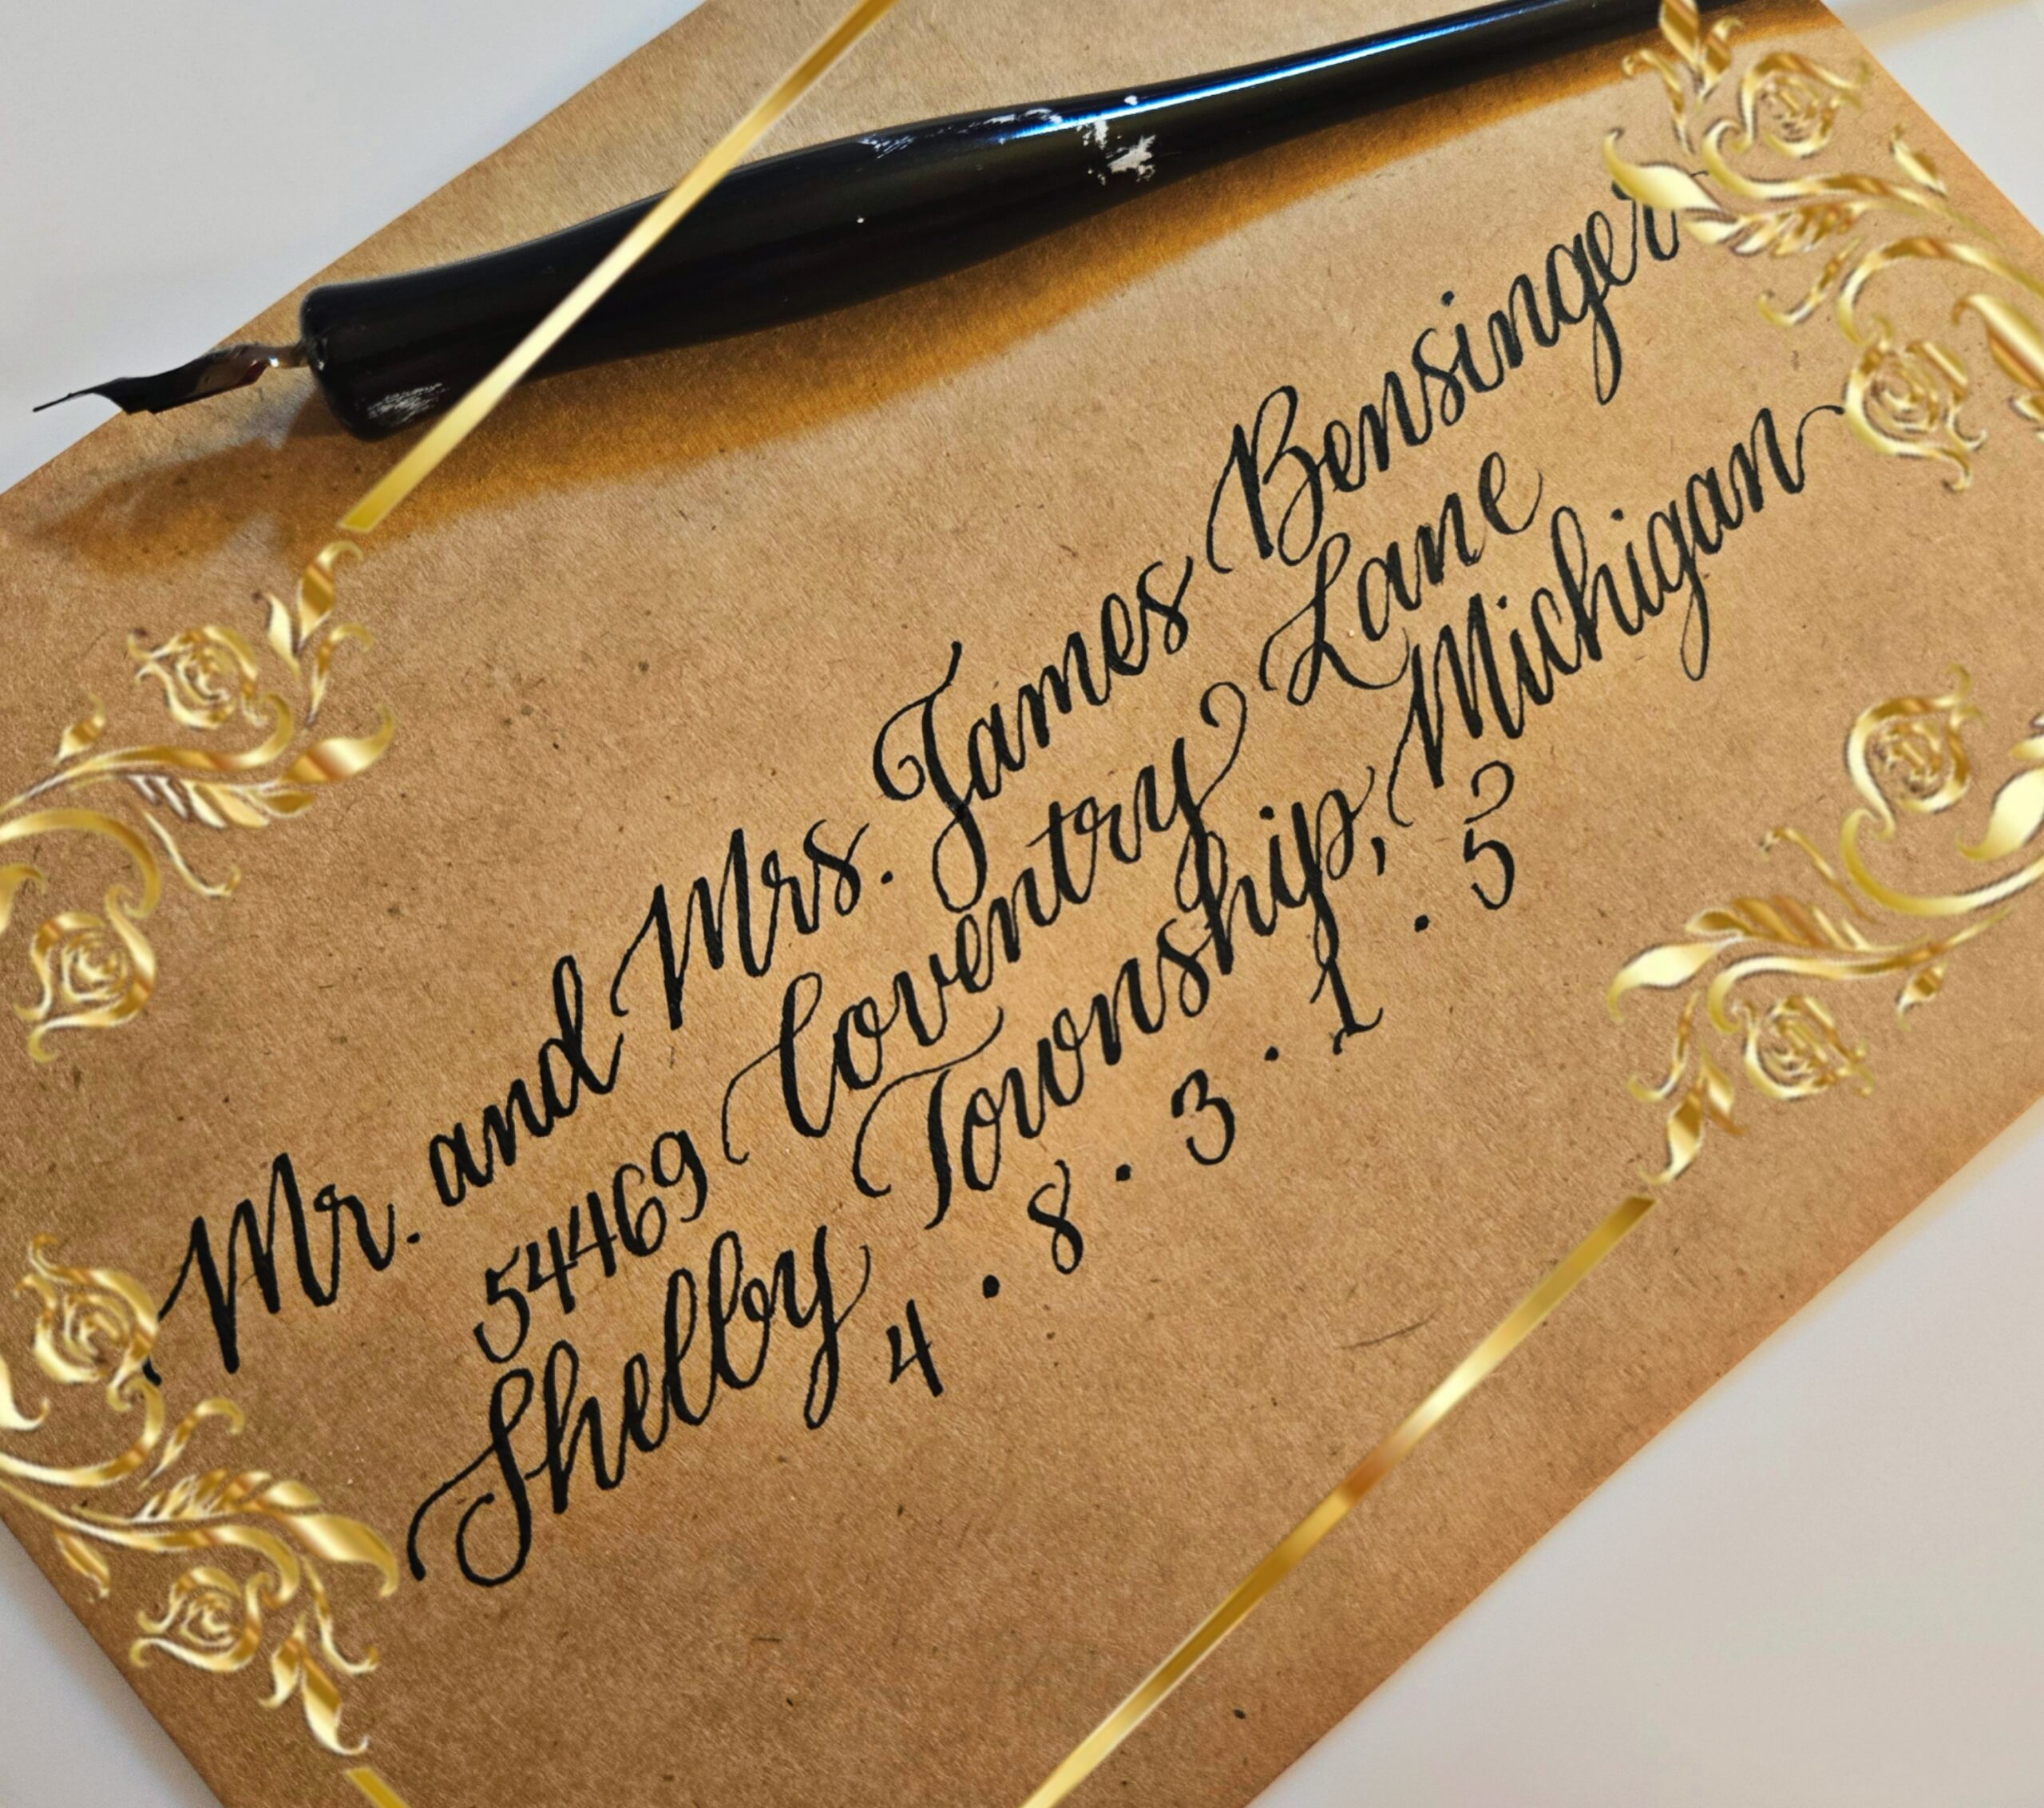 Mr. and Mrs. James Bensinger
54469 Coventry Lane
Shelby Township, Michigan
4 . 8 . 3 . 1 . 5